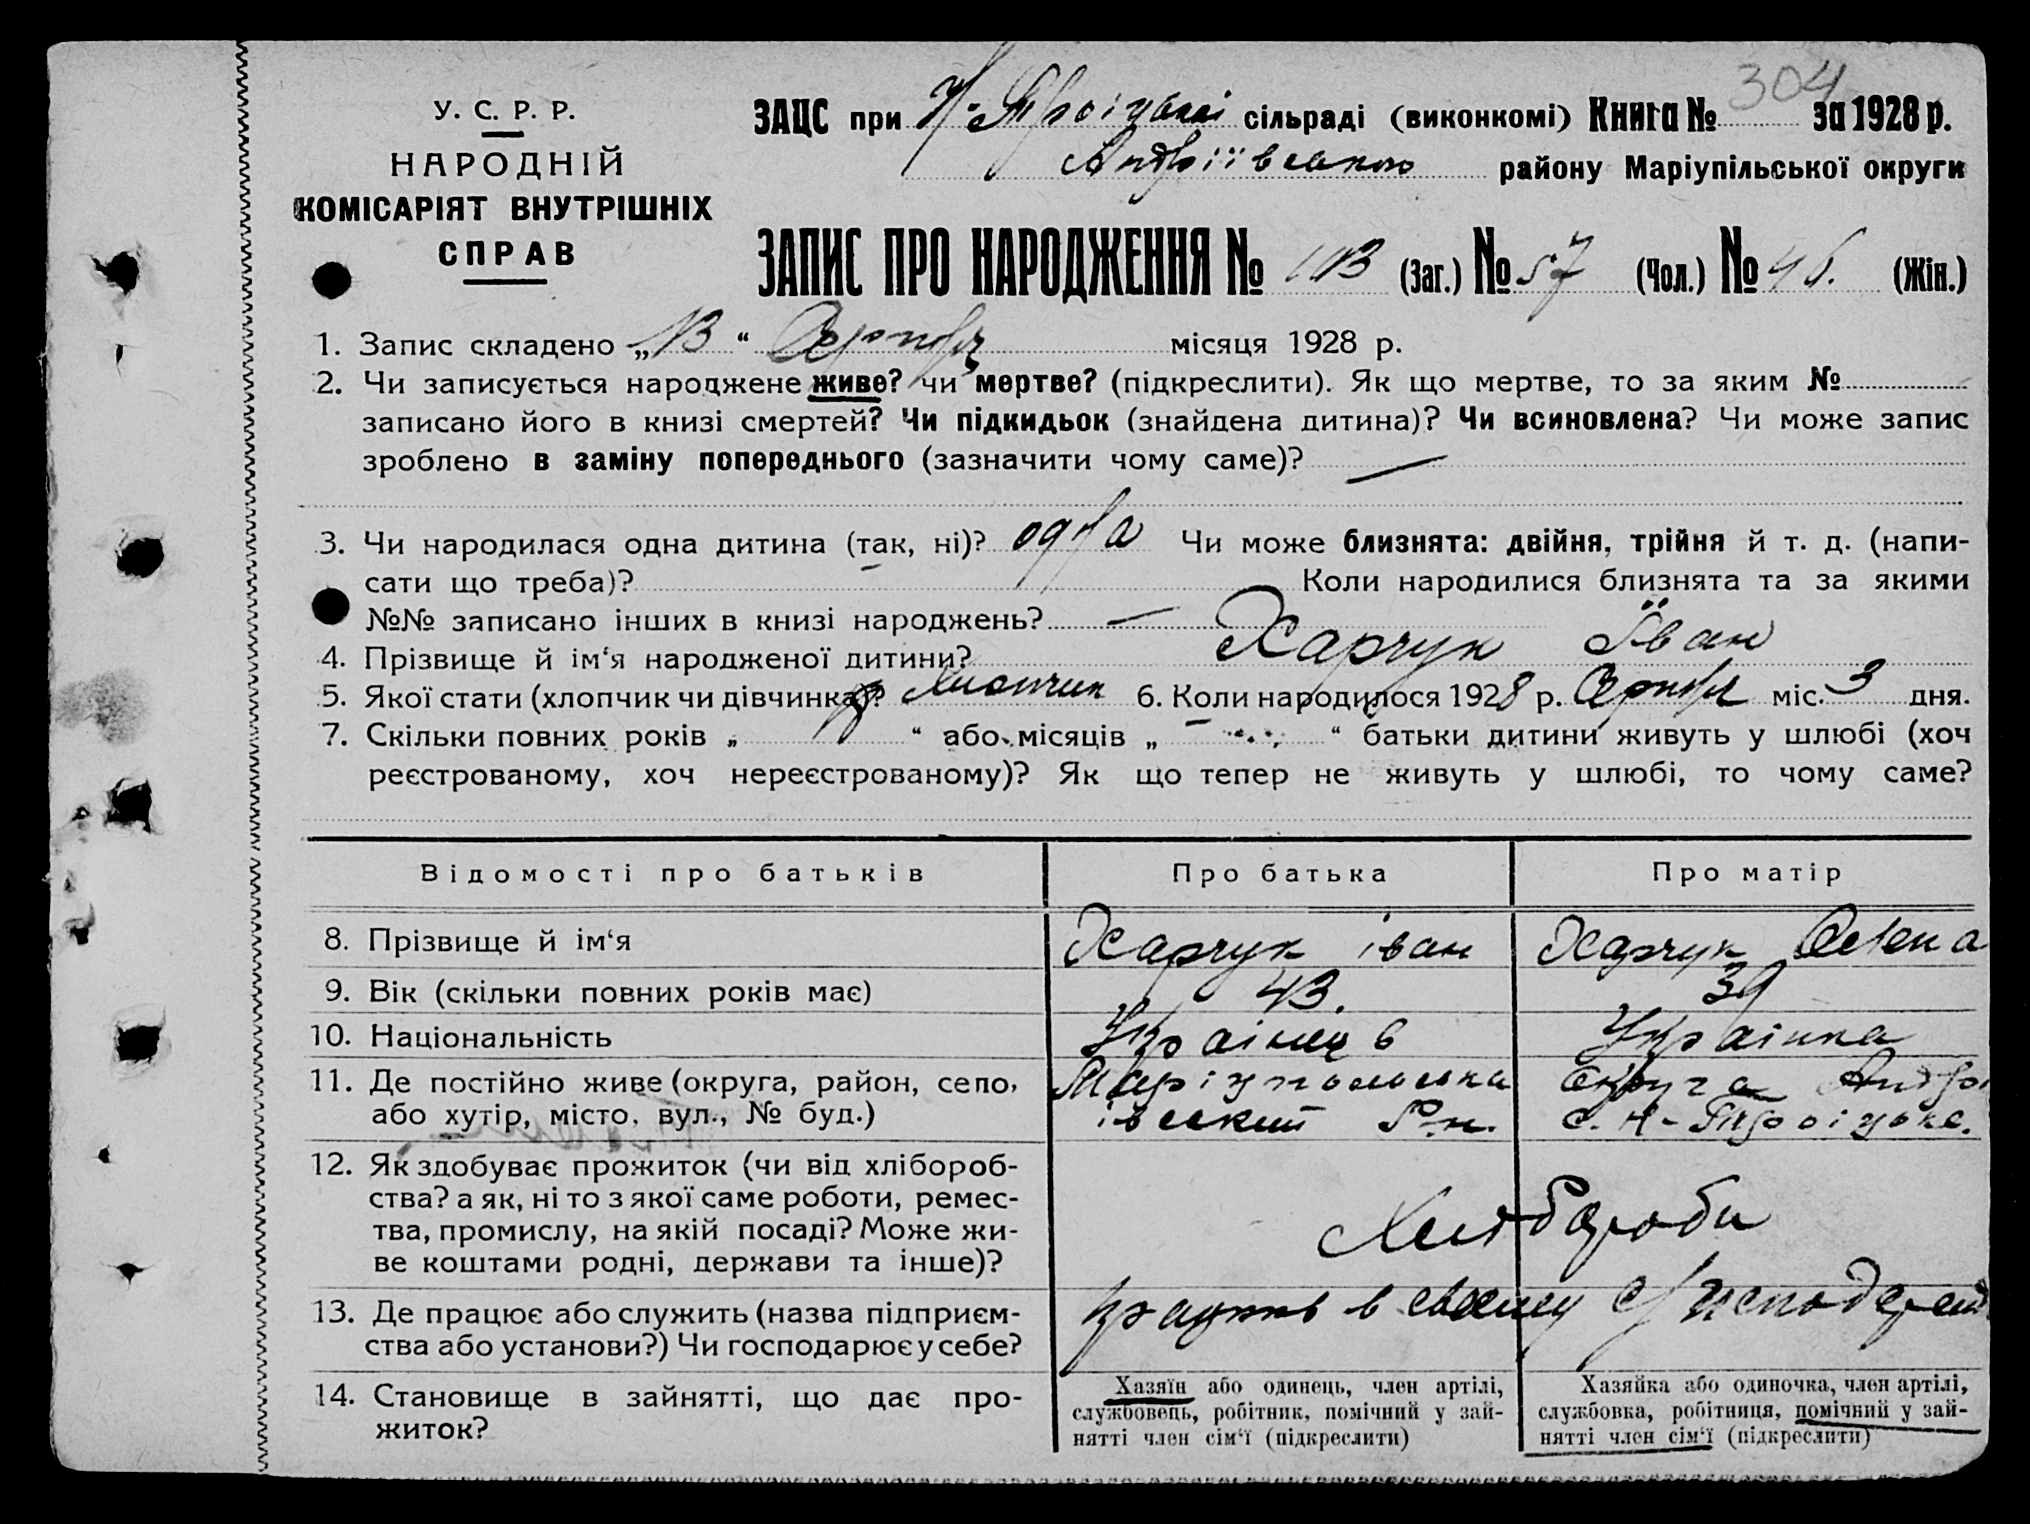 304
У. С. Р. Р.
НАРОДНІЙ
КОМІСАРІЯТ ВНУТРІШНІХ
СПРАВ
ЗАЦС при Н-Троїцькі сільраді (виконкомі) Книга № за 1928 р.
Андріївсько району Маріупільської округи
ЗАПИС ПРО НАРОДЖЕННЯ № 103 (Заг.) № 57 (Чол.) № 46. (Жін.)
1. Запис складено „13“ Серпня місяця 1928 р.
2. Чи записується народжене живе? чи мертве? (підкреслити). Як що мертве, то за яким №
записано його в книзі смертей? Чи підкидьок (знайдена дитина)? Чи всиновлена? Чи може запис
зроблено в заміну попереднього (зазначити чому саме)? —
3. Чи народилася одна дитина (так, ні)? одна Чи може близнята: двійня, трійня й т. д. (напи-
сати що треба)? Коли народилися близнята та за якими
№№ записано інших в книзі народжень? —
4. Прізвище й ім‘я народженої дитини? Харчук Іван
5. Якої стати (хлопчик чи дівчинка)? Хлопчик 6. Коли народилося 1928 р. Серпня міс. 3 дня.
7. Скільки повних років „ “ або місяців „ “ батьки дитини живуть у шлюбі (хоч
реєстрованому, хоч нереєстрованому)? Як що тепер не живуть у шлюбі, то чому саме?
Відомості про батьків Про батька Про матір
8. Прізвище й ім‘я Харчук Іван Харчук Олена
9. Вік (скільки повних років має) 43. 39
10. Національність Українец Українка
11. Де постійно живе (округа, район, село, Маріупольська Округа Андрі
або хутір, місто, вул., № буд.) івський Р-н. С. Н-Троіцьке.
12. Як здобуває прожиток (чи від хлібороб-
ства? а як, ні то з якої саме роботи, ремес-
тва, промислу, на якій посаді? Може жи-
ве коштами родні, держави та інше)?
Хлібороби
13. Де працює або служить (назва підприєм-
ства або установи?) Чи господарює у себе?
в своему
14. Становище в зайнятті, що дає про-
житок?
Хазяїн або одинець, член артілі,
службовець, робітник, помічний у зай-
нятті член сім‘ї (підкреслити)
Хазяйка або одиночка, член артілі,
службовка, робітниця, помічний у зай-
нятті член сім‘ї (підкреслити)